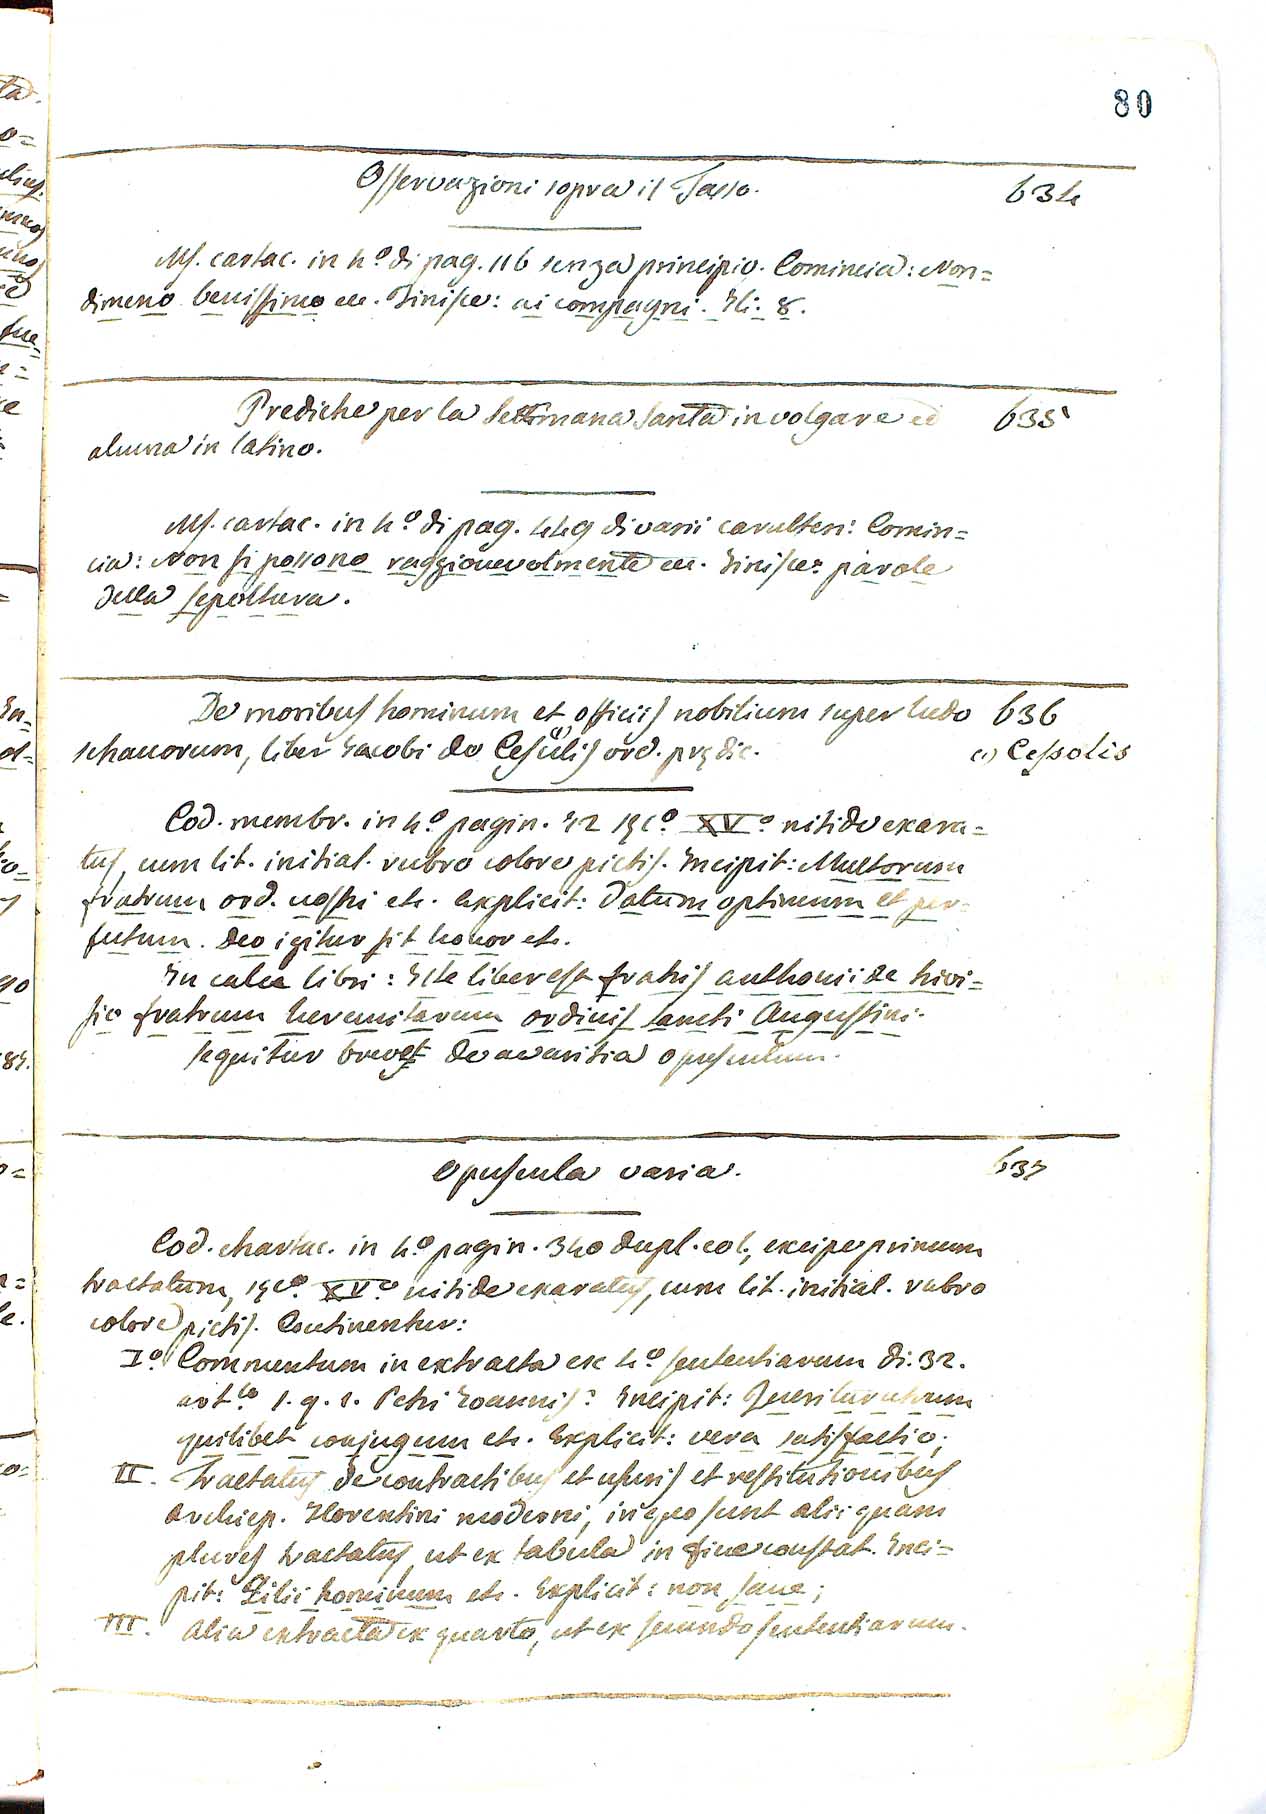 80
Osservazioni sopra il Tasso. 634
Ms. cartac. in 4.º di pag. 116 senza principio. Comincia: Non=
dimeno benissimo ec. Finisce: ai compagni. Hi: 8.
Prediche per la Settimana Santa in volgare ed 635
alcuna in latino.
Ms. cartac. in 4.º di pag. 449 di varii caratteri: Comin=
cia: Non si possono raggionevolmente ec. Finisce: parole
della sepoltura.
De moribus hominum et officiis nobilium super ludo 636
schacorum, liber Jacobi de Cesulis (1) ord. prędic. (1) Cessolis
Cod. membr. in 4.º pagin. 72 sęc.º XV.º nitide exara=
tus, cum lit. initial. rubro colore pictis. Incipit: Multorum
fratrum ord. nostri etc. Explicit: Datum optimum et per=
fectum. Deo igitur sit honor etc.
In calce libri: Iste liber est fratris anthonii de
fratrum heremitarum ordinis sancti Augustini.
Sequitur breve de avaritia opusculum.
Opuscula varia. 637
Cod. chartac. in 4.º pagin. 340 dupl. col., excipe primum
tractatum, sęc.º XV.º nitide exaratus, cum lit. initial. rubro
colore pictis. Continentur:
I.º Commentum in extracta ex 4.º sententiarum di: 32.
art.lo 1. q. 1. Petri Joannis: Incipit: Queritur utrum
quilibet conjugum etc. Explicit: vera satisfactio;
II. Tractatus de contractibus et usuris et restitutionibus
Archiep. Florentini moderni, in quo sunt alii quam
plures tractatus, ut ex tabula in fine constat. Inci=
pit: Filii hominum etc. Explicit: non sane;
III. Alia extracta ex quarto, ut ex secundo sententiarum.